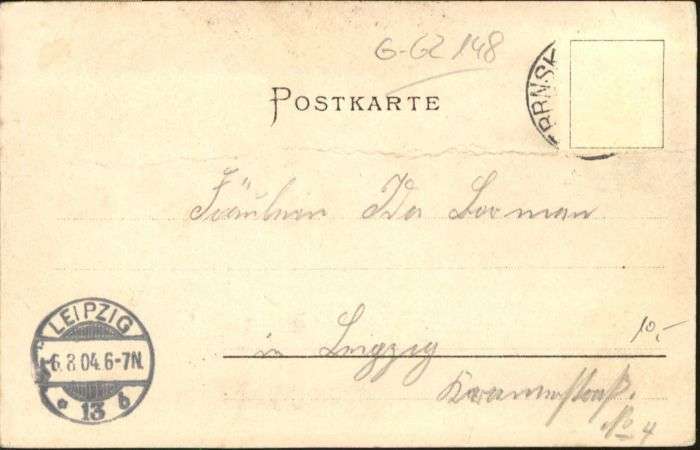 G-GZ 148
POSTKARTE
Fräulein Ida Borman
10,-
in Leipzig
No 4
LEIPZIG
6.8.04.6-7N.
* 13 b